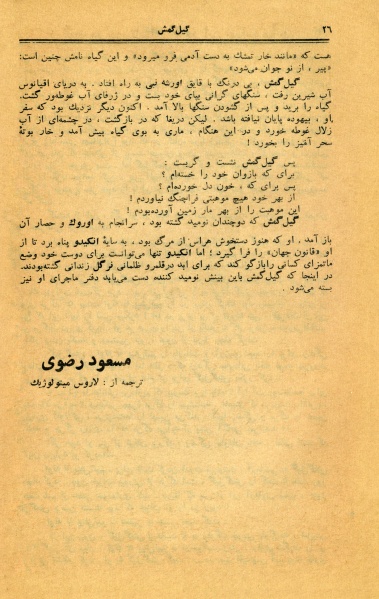 ۲۶
گیل‌گمش
هست که «مانند خار تمشك به دست آدمی فرو میرود» و این گیاه نامش چنین است:
«پیر ، از نو جوان می‌شود»
گیل‌گمش ، بی درنگ با قایق اورشه نبی به راه افتاد . به دریای اقیانوس
آب شیرین رفت ، سنگهای گرانی بپای خود بست و در ژرفای آب غوطه‌ور گشت.
گیاه را برید و پس از گشودن سنگها بالا آمد . اکنون دیگر نزدیك بود که سفر
او ، بیهوده پایان نیافته باشد . لیکن دریغا که در بازگشت ، در چشمه‌ای از آب
زلال غوطه خورد و در این هنگام ، ماری به بوی گیاه پیش آمد و خار بوتهٔ
سحر آمیز را بخورد !
پس گیل‌گمش نشست و گریست :
برای که بازوان خود را خسته‌ام ؟
پس برای که ، خون دل خورده‌ام ؟
از بهر خود هیچ موهبتی فراچنگ نیاوردم !
این موهبت را از بهر مار زمین آورده‌بودم !
گیل‌گمش که دوچندان نومید گشته بود ، سرانجام به اوروك و حصار آن
باز آمد . او که هنوز دستخوش هراس از مرگ بود ، به سایهٔ انکیدو پناه برد تا از
او «قانون جهان» را فرا گیرد ! اما انکیدو تنها می‌توانست برای دوست خود وضع
ماتمزای کسانی رابازگو کند که برای ابد درقلمرو ظلمانی نرگل زندانی گشته‌بودند.
در اینجا که گیل‌گمش باین بینش نومید کننده دست می‌یابد دفتر ماجرای او نیز
بسته می‌شود .
مسعود رضوی
ترجمه از : لاروس میتولوژیك